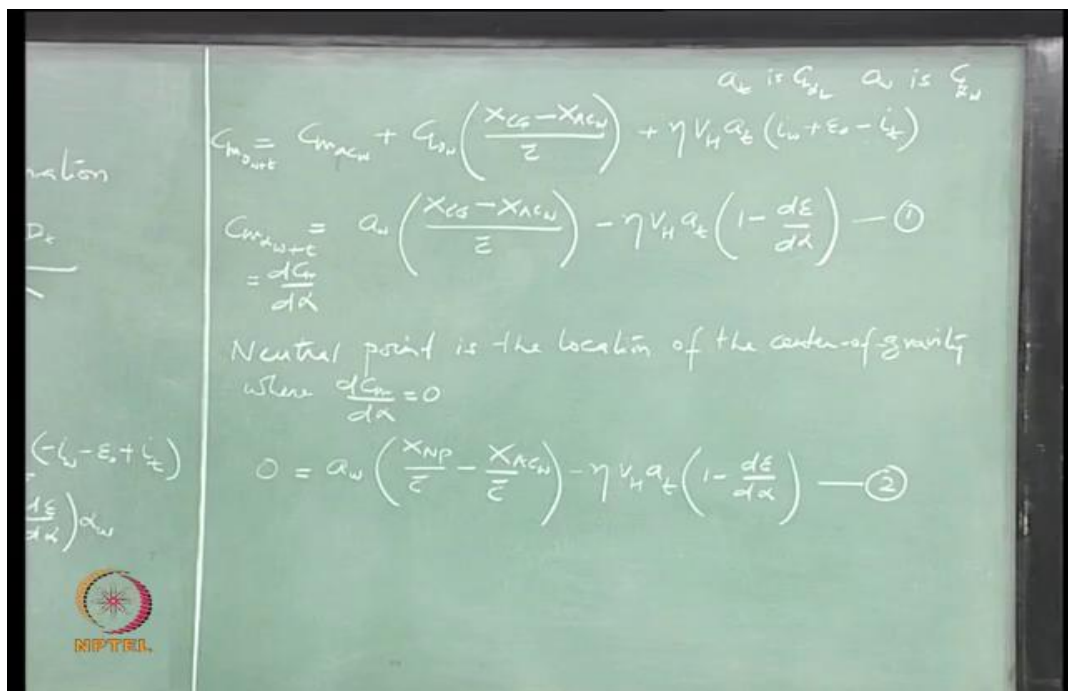 nation
D_t
(-i_w - ε_0 + i_t)
dε/dα) α_w
a_t is C_Lαt a_w is C_Lαw
C_m0w+t = C_mACw + C_L0w ((X_CG - X_ACw)/c̄) + η V_H a_t (i_w + ε_0 - i_t)
C_mαw+t = a_w ((X_CG - X_ACw)/c̄) - η V_H a_t (1 - dε/dα) — ①
= dC_m/dα
Neutral point is the location of the center-of-gravity
where dC_m/dα = 0
0 = a_w (X_NP/c̄ - X_ACw/c̄) - η V_H a_t (1 - dε/dα) — ②
NPTEL